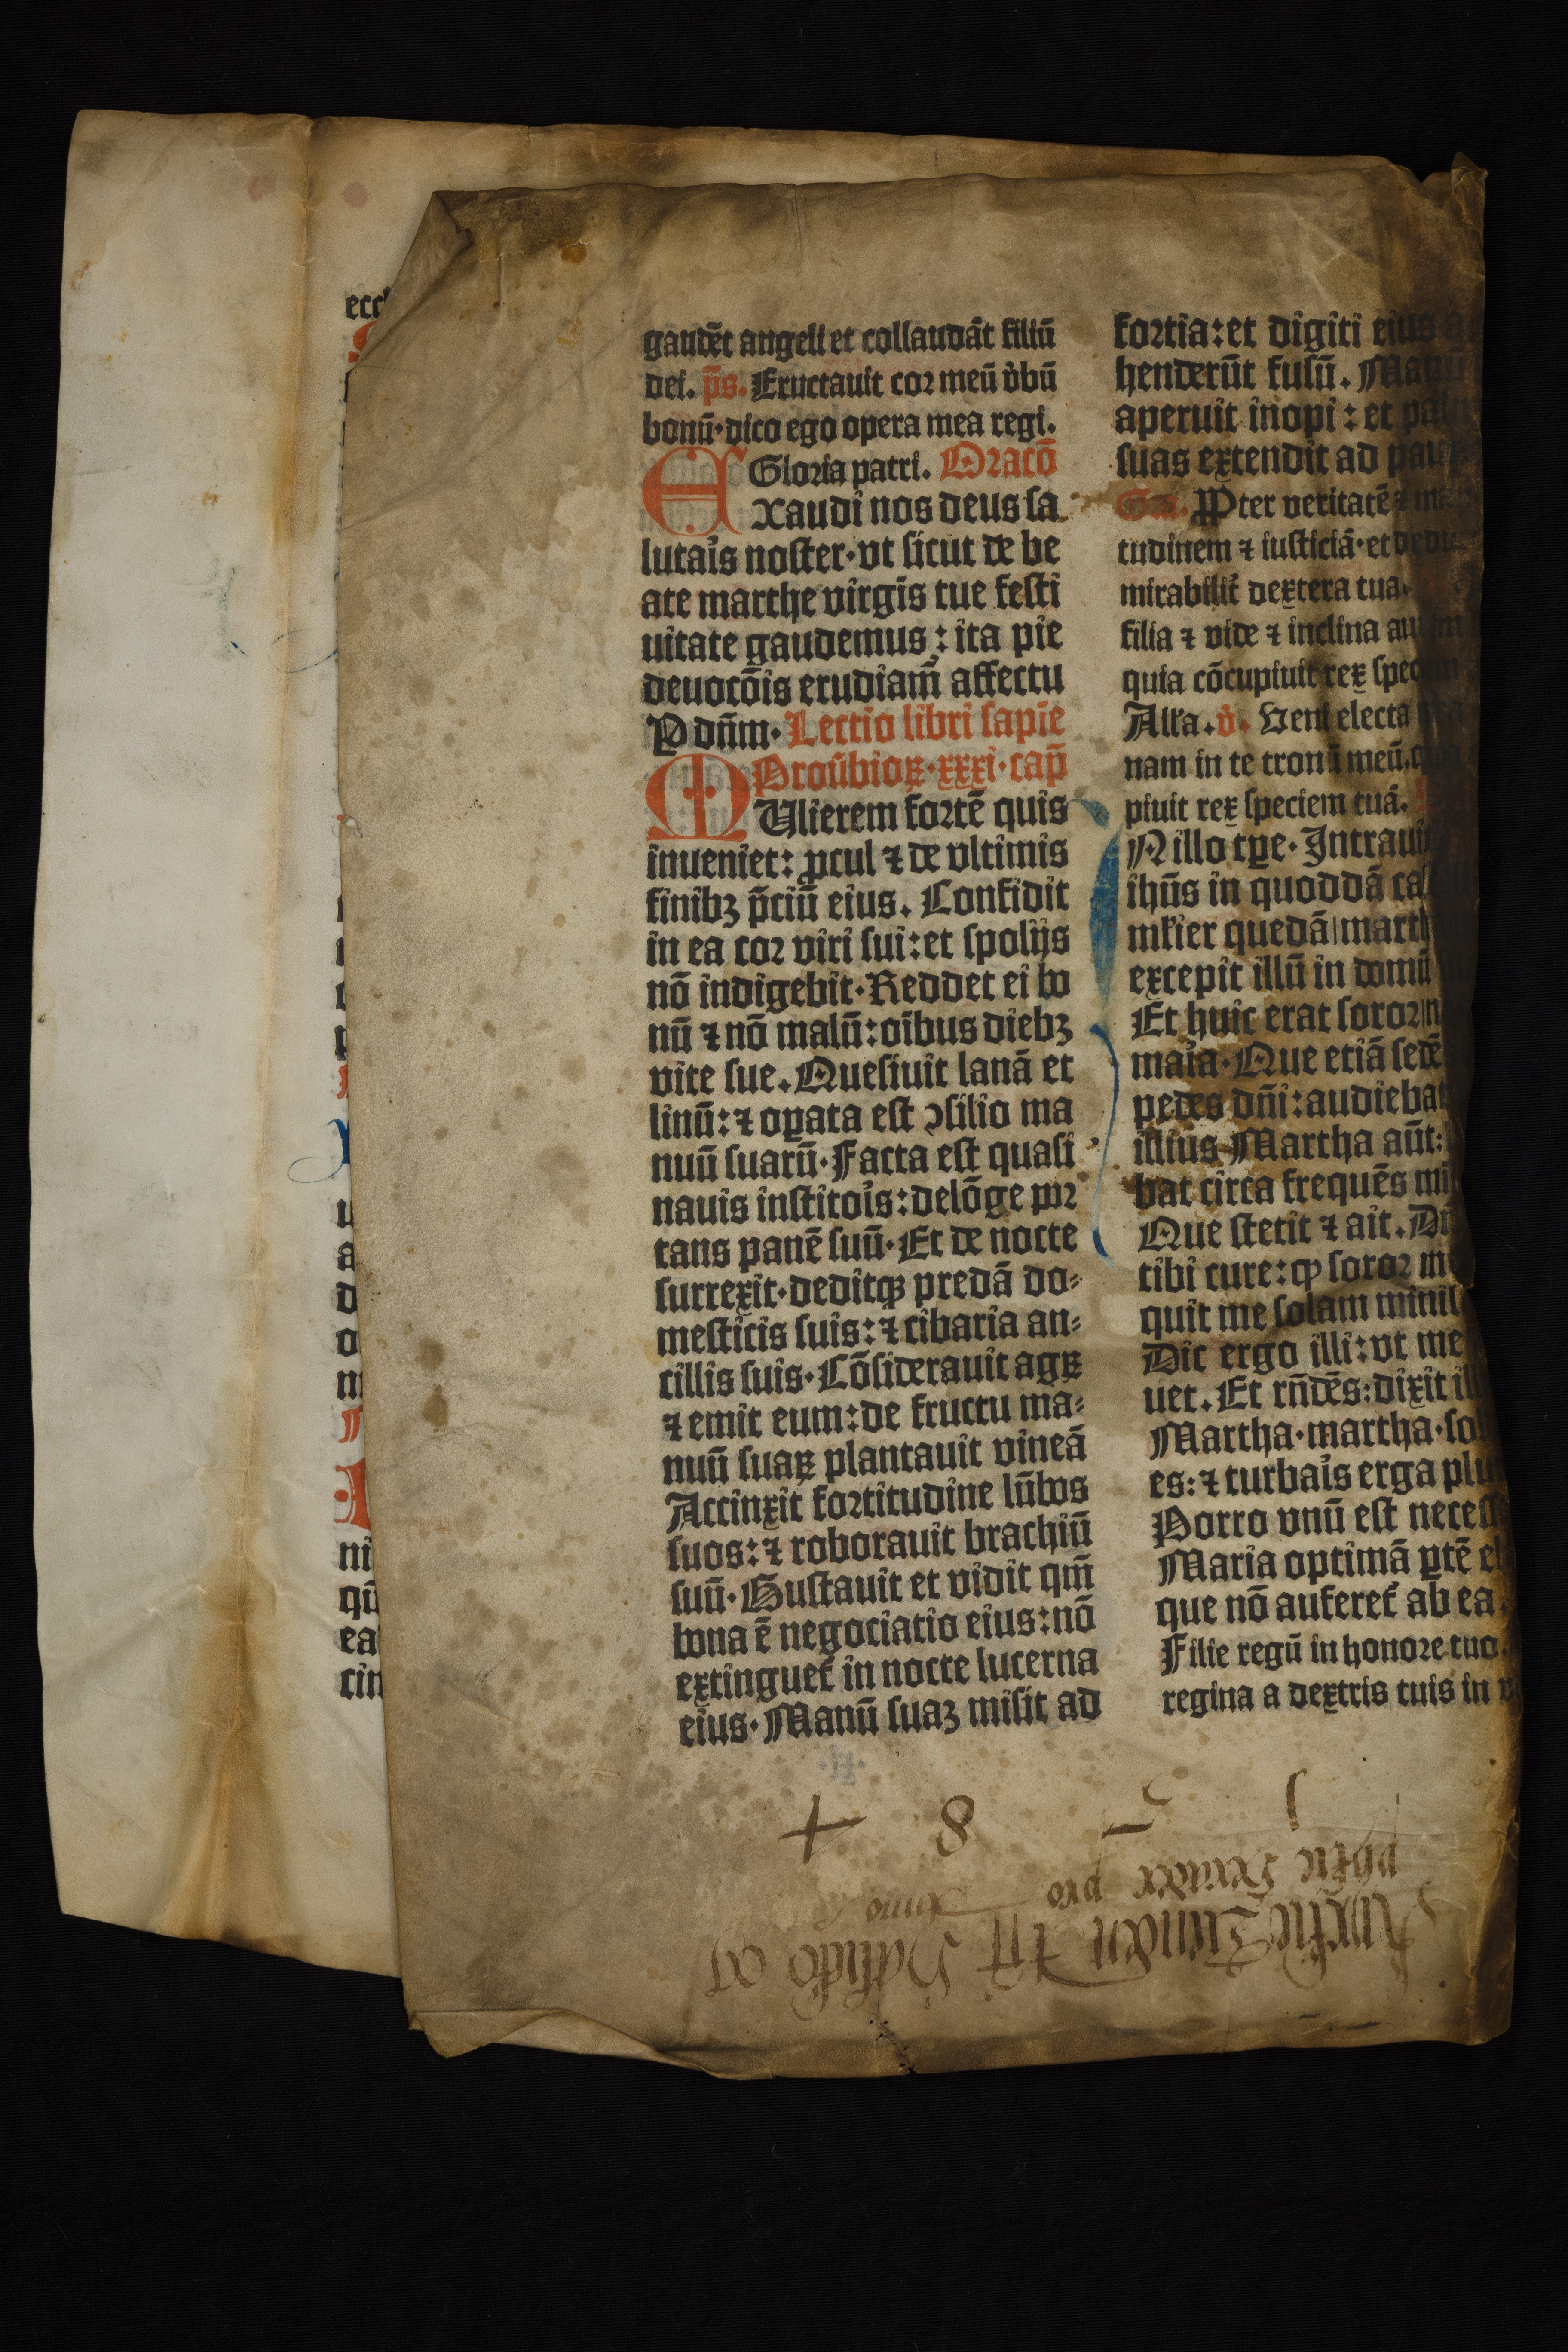 gaudēt angeli et collaudāt filiū
dei. p̄s. Eructauit cor meū v̇bū
bonū·dico ego opera mea regi.
Gloria patri. Oracō
Exaudi nos deus sa
lutaŕis noster·vt sicut de be
ate marthe virgīs tue festi
uitate gaudemus: ita pie
deuocōis erudiam̄ affectu
P dn̄m. Lectio libri sapīe
Prou̇bioꝝ·xxxi·cap̄
MUlierem fortē quis
inueniet: ꝓcul ⁊ de vltimis
finibꝫ p̄ciū eius. Confidit
in ea cor viri sui: et spolijs
nō indigebit·Reddet ei bo
nū ⁊ nō malū: oībus diebꝫ
vite sue. Quesiuit lanā et
linū: ⁊ oꝑata est ↄsilio ma
nuū suarū·Facta est quasi
nauis institoŕis: delōge por
tans panē suū·Et de nocte
surrexit·deditqꝫ predā do⸗
mesticis suis: ⁊ cibaria an⸗
cillis suis·Cōsiderauit agꝝ
⁊ emit eum: de fructu ma⸗
nuū suaꝝ plantauit vineā
Accinxit fortitudine lūbos
suos: ⁊ roborauit brachiū
suū·Gustauit et vidit qm̄
bona ē negociatio eius: nō
extinguet᷑ in nocte lucerna
eius·Manū suaꝫ misit ad
fortia: et digiti eius
henderūt fusū. Manū
aperuit inopi: et
suas extendit ad
PPter veritatē ⁊
tudinem ⁊ iusticiā·et
mirabilit᷑ dextera tua.
filia ⁊ vide ⁊ inclina
quia cōcupiuit rex
All'a. v̇. Veni electa
nam in te tronū meū.
piuit rex speciem tuā.
N illo tꝑe·Intrauit
ihūs in quoddā
ml'ier quedā
excepit illū in domū
Et huic erat soror
maŕia·Que etiā
pedes dn̄i: audiebat
illius Martha aūt:
bat circa frequēs
Que stetit ⁊ ait.
tibi cure: ꝙ soror
quit me solam
Dic ergo illi: vt me
uet. Et rn̄dēs: dixit
Martha·martha·
es: ⁊ turbaŕis erga
Porro vnū est
Maria optimā ꝑtē
que nō auferet᷑ ab ea.
Filie regū in honore tuo.
regina a dextris tuis in
8
pro